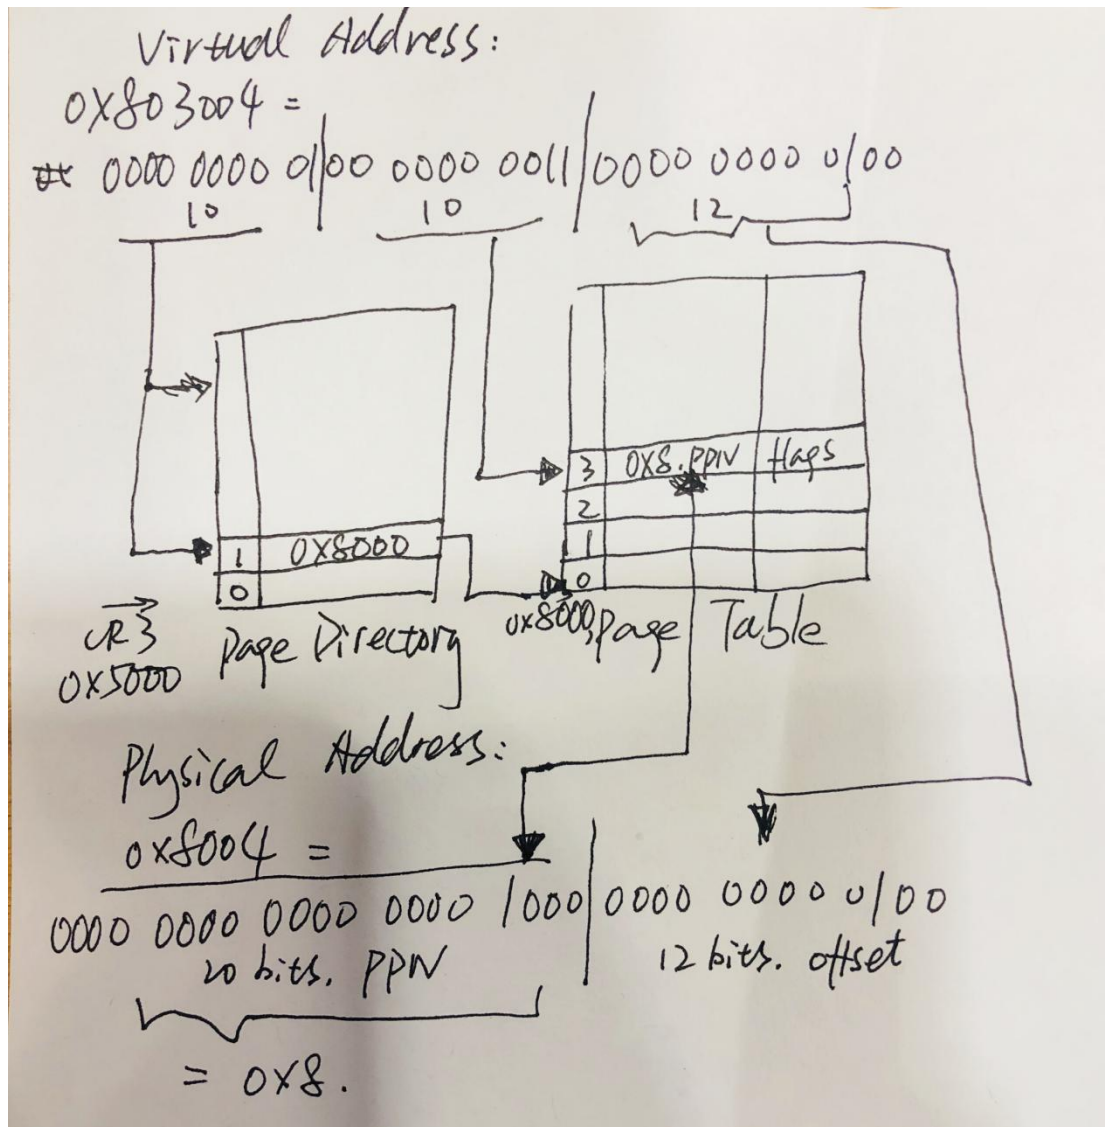 Virtual Address:
0x803004 =
0000 0000 01|00 0000 0011|0000 0000 0100
10 10 12
3 0x8.PPN flags
2
1 0x8000 1
0 0
CR3 Page Directory 0x8000, Page Table
0x5000
Physical Address:
0x8004 =
0000 0000 0000 0000 1000|0000 0000 0100
20 bits. PPN 12 bits. offset
= 0x8.